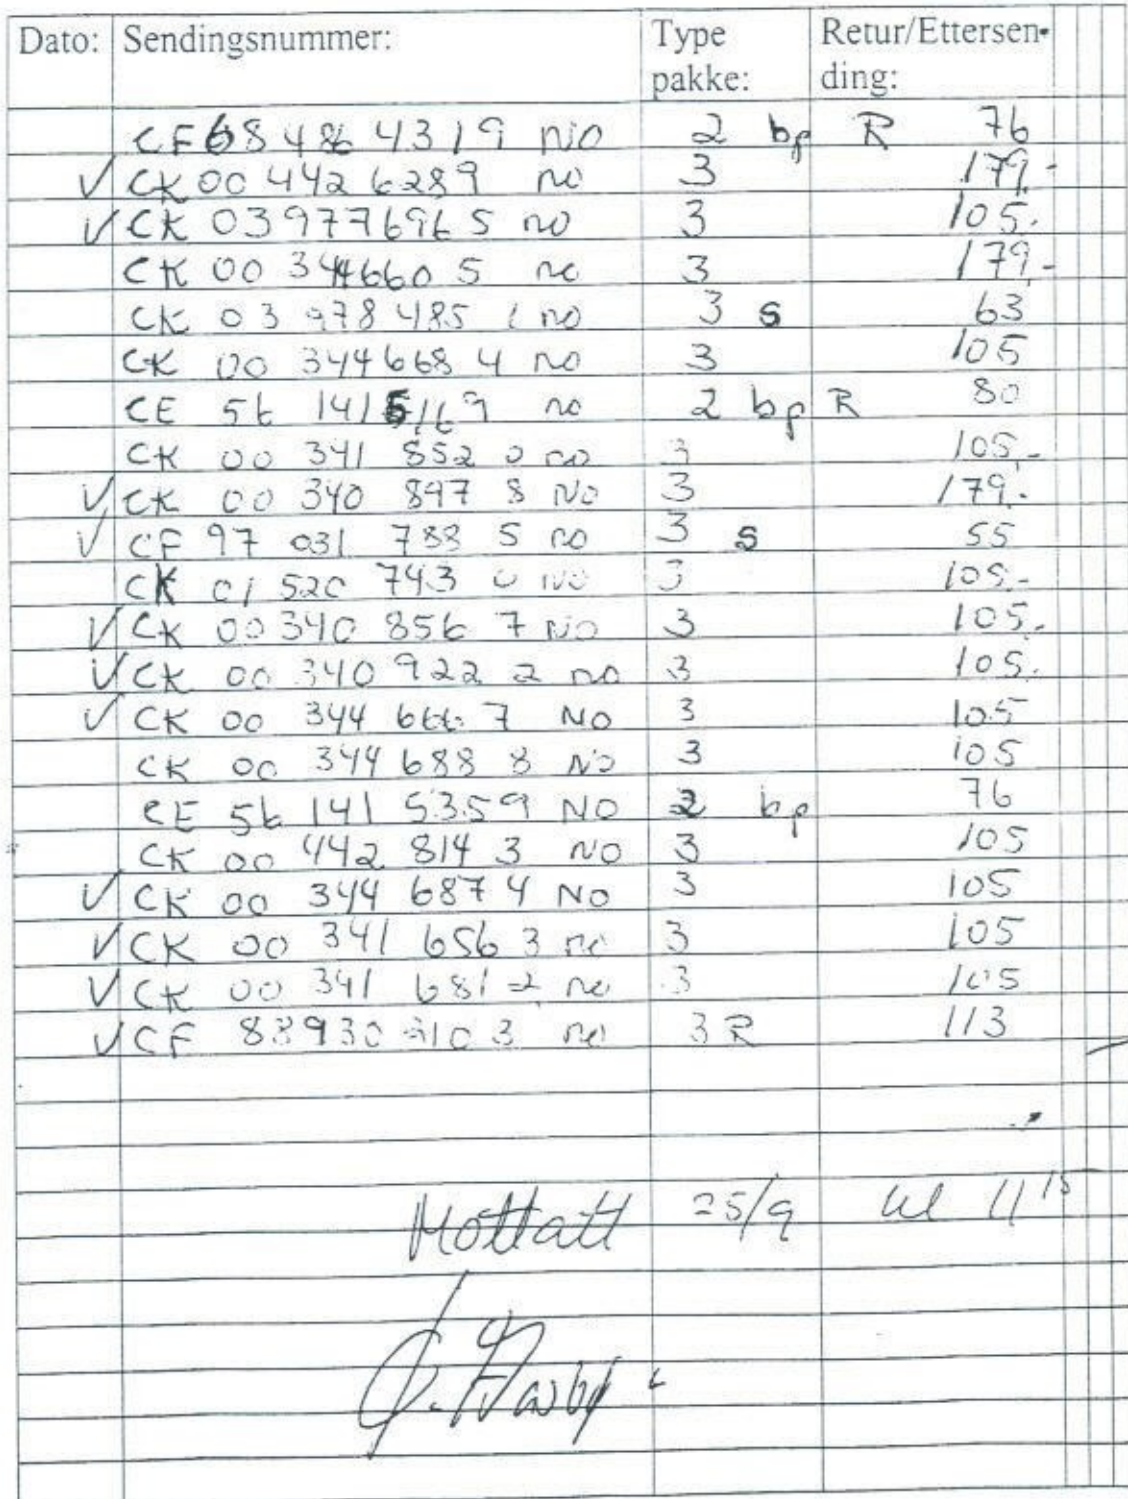 Dato: Sendingsnummer: Type pakke: Retur/Ettersen-ding:
CF 68 486 4319 NO 2 bp R 76
✓ CK 00 442 6289 no 3 179.-
✓ CK 03 977 696 5 no 3 105.-
CK 00 344 660 5 no 3 179.-
CK 03 978 485 1 no 3 S 63
CK 00 344 668 4 no 3 105
CE 56 141 5169 no 2 bp R 80
CK 00 341 852 0 no 3 105.-
✓ CK 00 340 897 8 NO 3 179.-
✓ CF 97 031 788 5 no 3 S 55
CK 01 520 743 0 NO 3 105.-
✓ CK 00 340 856 7 NO 3 105.-
✓ CK 00 340 922 2 no 3 105.
✓ CK 00 344 666 7 NO 3 105
CK 00 344 688 8 NO 3 105
CE 56 141 5359 NO 2 bp 76
CK 00 442 814 3 NO 3 105
✓ CK 00 344 687 4 NO 3 105
✓ CK 00 341 656 3 no 3 105
✓ CK 00 341 681 2 no 3 105
✓ CF 88930 310 3 no 3 R 113
Mottatt 25/9 kl 11 15